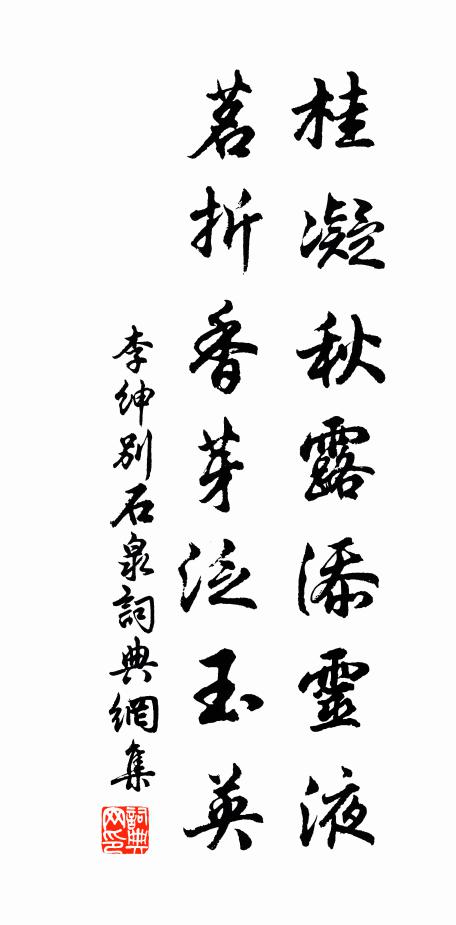 桂凝秋露添靈液
茗折香芽泛玉英
李紳別石泉詞典網集
詞典网印